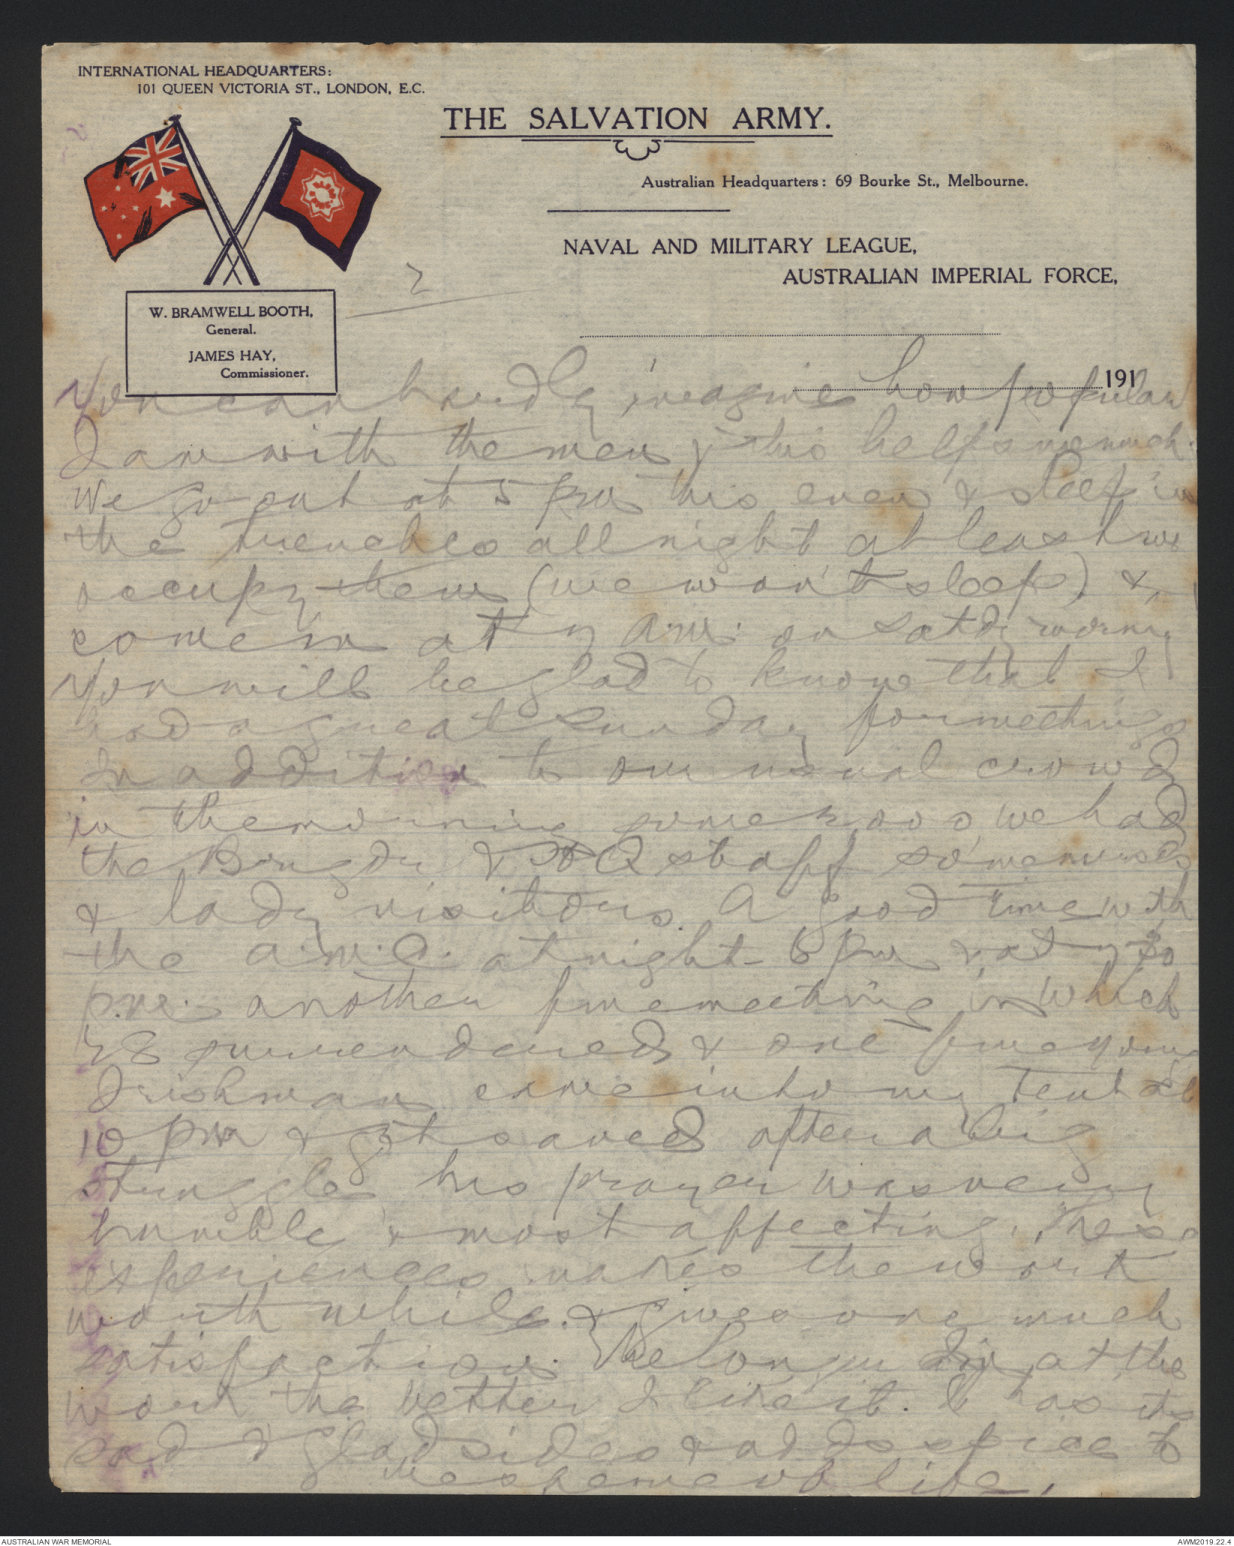 INTERNATIONAL HEADQUARTERS:
101 QUEEN VICTORIA ST., LONDON, E.C.
THE SALVATION ARMY.
Australian Headquarters: 69 Bourke St., Melbourne.
NAVAL AND MILITARY LEAGUE,
AUSTRALIAN IMPERIAL FORCE,
W. BRAMWELL BOOTH,
General.
JAMES HAY,
Commissioner.
2
191
You can hardly imagine how popular
I am with the men & this helps me much.
We go out at 5 pm this even & sleep in
the trenches all night at least we
occupy them (we won't sleep) &
come in at 7 a.m. on Satdy morning
You will be glad to know that I
had a great Sunday for meetings
In addition to our usual crowd
in the morning some 2000 we had
the Brigdr & HQ staff some nurses
& lady visitors. A good time with
the A.M.C. at night 6 pm & at 7-30
p.m. another fine meeting in which
28 surrendered & one fine young
Irishman came into my Tent at
10 pm & got saved after a big
struggle his prayer was very
humble & most affecting. These
experiences makes the work
worth while. & gives one much
satisfaction. The longer I'm at the
work the better I like it. I has its
sad & glad sides & adds spice to
life.